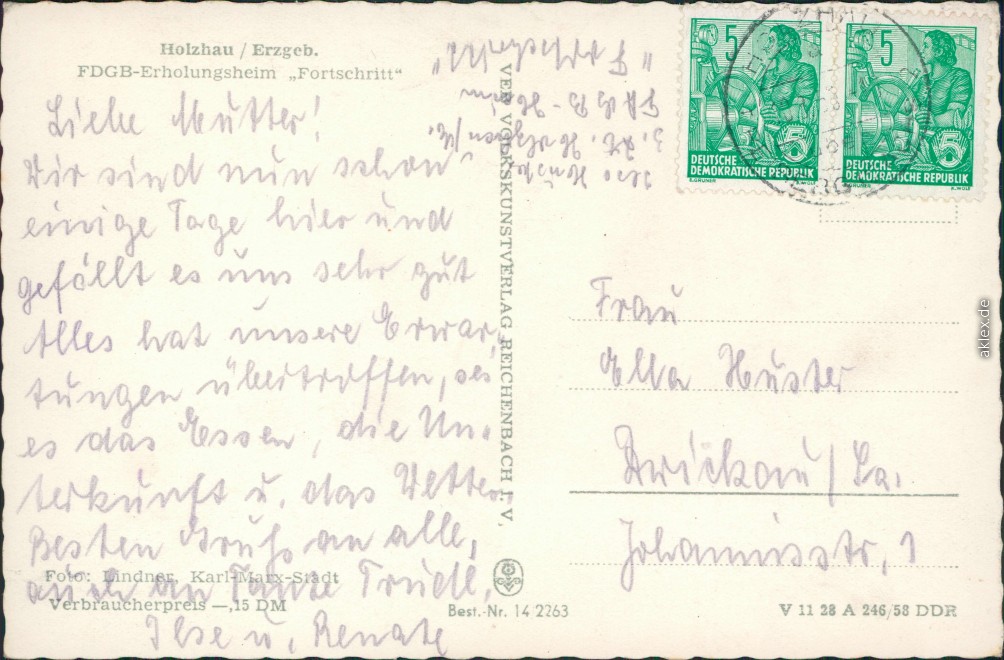 Holzhau / Erzgeb.
FDGB-Erholungsheim „Fortschritt“
Liebe Mutter!
Wir sind nun schon
einige Tage hier und
gefällt es uns sehr gut
Alles hat unsere Erwar-
tungen übertroffen, sei
es das Essen, die Un-
terkunft u. das Wetter.
Besten Gruß an alle,
auch an Tante Trudl,
Ilse u. Renate
Foto: Lindner, Karl-Marx-Stadt
Verbraucherpreis —,15 DM
z. Zt. Holzhau/E.
FDGB-Heim
"Fortschritt"
VEB VOLKSKUNSTVERLAG REICHENBACH I. V.
Best.-Nr. 14 2263
5
DEUTSCHE
DEMOKRATISCHE REPUBLIK
E.GRUNER A.WOLF
5
DEUTSCHE
DEMOKRATISCHE REPUBLIK
E.GRUNER A.WOLF
Frau
Ella Huster
Zwickau/Sa.
Johannisstr. 1
V 11 28 A 246/58 DDR
aklex.de